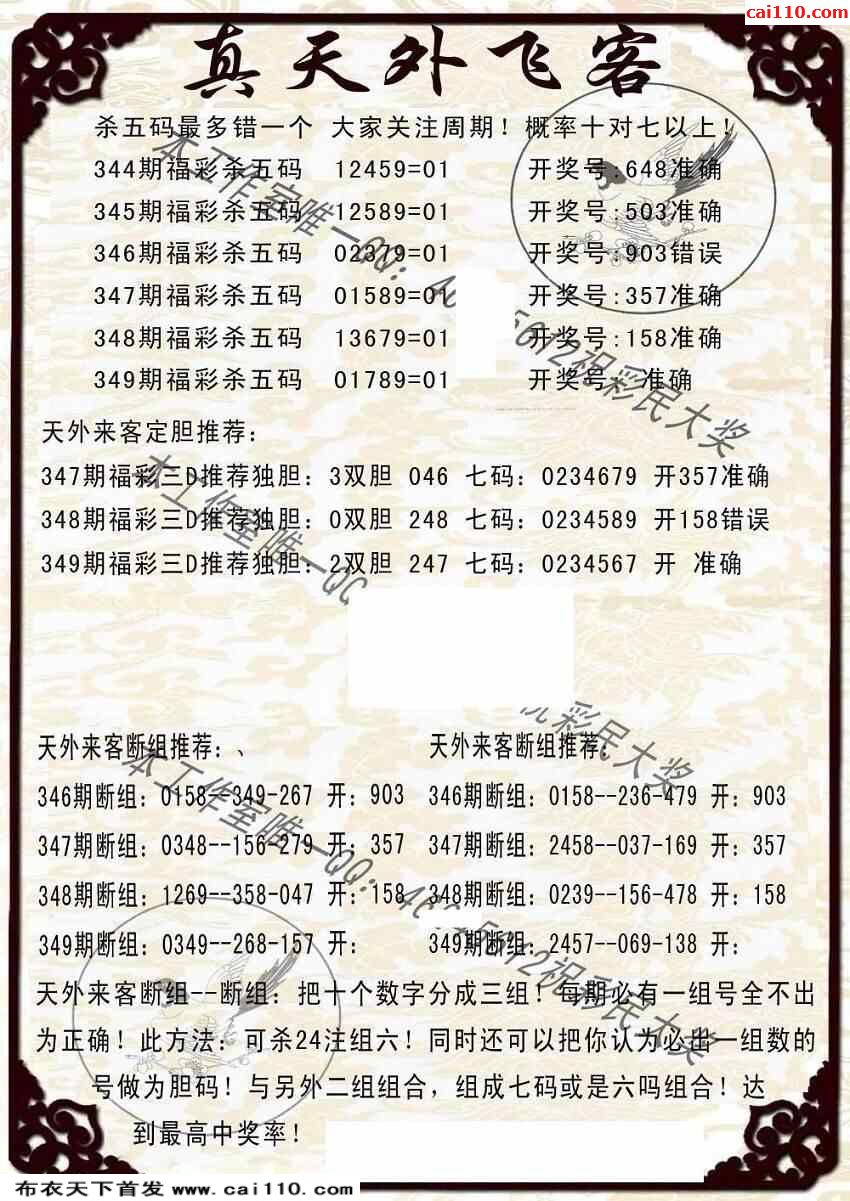 cai110.com
真天外飞客
杀五码最多错一个 大家关注周期！概率十对七以上！
344期福彩杀五码 12459=01 开奖号:648准确
345期福彩杀五码 12589=01 开奖号:503准确
346期福彩杀五码 02319=01 开奖号:903错误
347期福彩杀五码 01589=01 开奖号:357准确
348期福彩杀五码 13679=01 开奖号:158准确
349期福彩杀五码 01789=01 开奖号: 准确
天外来客定胆推荐：
347期福彩三D推荐独胆：3双胆 046 七码：0234679 开357准确
348期福彩三D推荐独胆：0双胆 248 七码：0234589 开158错误
349期福彩三D推荐独胆：2双胆 247 七码：0234567 开 准确
天外来客断组推荐：、 天外来客断组推荐：
346期断组：0158--349-267 开：903 346期断组：0158--236-479 开：903
347期断组：0348--156-279 开：357 347期断组：2458--037-169 开：357
348期断组：1269--358-047 开：158 348期断组：0239--156-478 开：158
349期断组：0349--268-157 开： 349期断组：2457--069-138 开：
天外来客断组--断组：把十个数字分成三组！每期必有一组号全不出
为正确！此方法：可杀24注组六！同时还可以把你认为必出一组数的
号做为胆码！与另外二组组合，组成七码或是六吗组合！达
到最高中奖率！
本工作室唯一QQ：
祝彩民大奖
本工作室唯一QQ
彩民大奖
本工作室唯一QQ：
祝彩民大奖
布衣天下首发 www.cai110.com